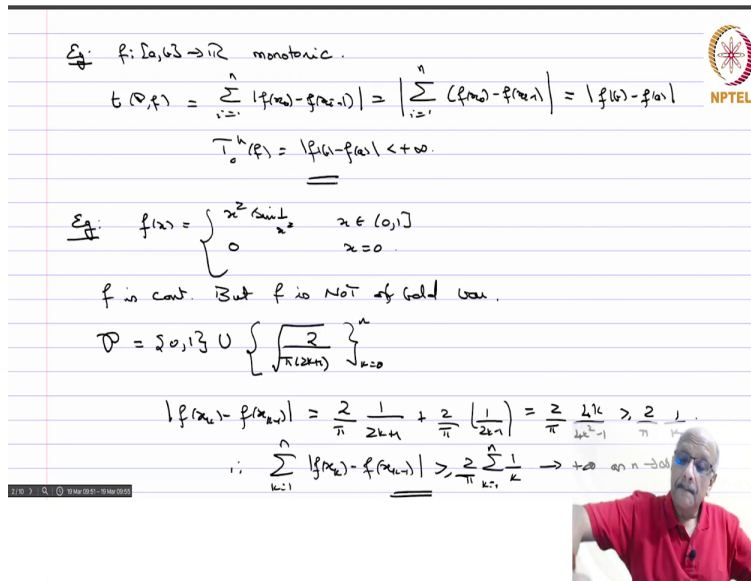 Eg: f: [a,b] → ℝ monotonic.
t(P,f) = Σ_{i=1}^{n} |f(x_i) - f(x_{i-1})| = |Σ_{i=1}^{n} (f(x_i) - f(x_{i-1}))| = |f(b) - f(a)|
NPTEL
T_a^b(f) = |f(b) - f(a)| < +∞.
Eg: f(x) = { x² sin 1/x² x ∈ (0,1]
0 x=0.
f is cont. But f is NOT of bdd var.
P = {0,1} ∪ { √(2/(π(2k+1))) }_{k=0}^{n}
|f(x_k) - f(x_{k-1})| = 2/π 1/(2k+1) + 2/π (1/(2k-1)) = 2/π 4k/(4k²-1) ≥ 2/π 1/k
∴ Σ_{k=1}^{n} |f(x_k) - f(x_{k-1})| ≥ 2/π Σ_{k=1}^{n} 1/k → +∞ as n→∞
2/10 19 Mar 09:51 - 19 Mar 09:55